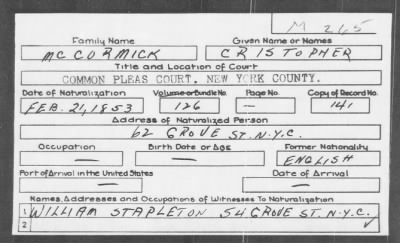 M 265
Family Name Given Name or Names
MCCORMICK CRISTOPHER
Title and Location of Court
COMMON PLEAS COURT. NEW YORK COUNTY.
Date of Naturalization Volume or Bundle No. Page No. Copy of Record No.
FEB. 21, 1853 126 — 141
Address of Naturalized Person
62 GROVE ST. N.Y.C.
Occupation Birth Date or Age Former Nationality
— — ENGLISH
Port of Arrival in the United States Date of Arrival
— —
Names, Addresses and Occupations of Witnesses To Naturalization
1 WILLIAM STAPLETON 54 GROVE ST. N.Y.C.
2 ✓